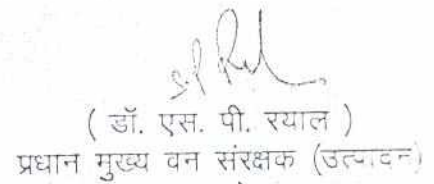 ( डॉ. एस. पी. रयाल )
प्रधान मुख्य वन संरक्षक (उत्पादन)